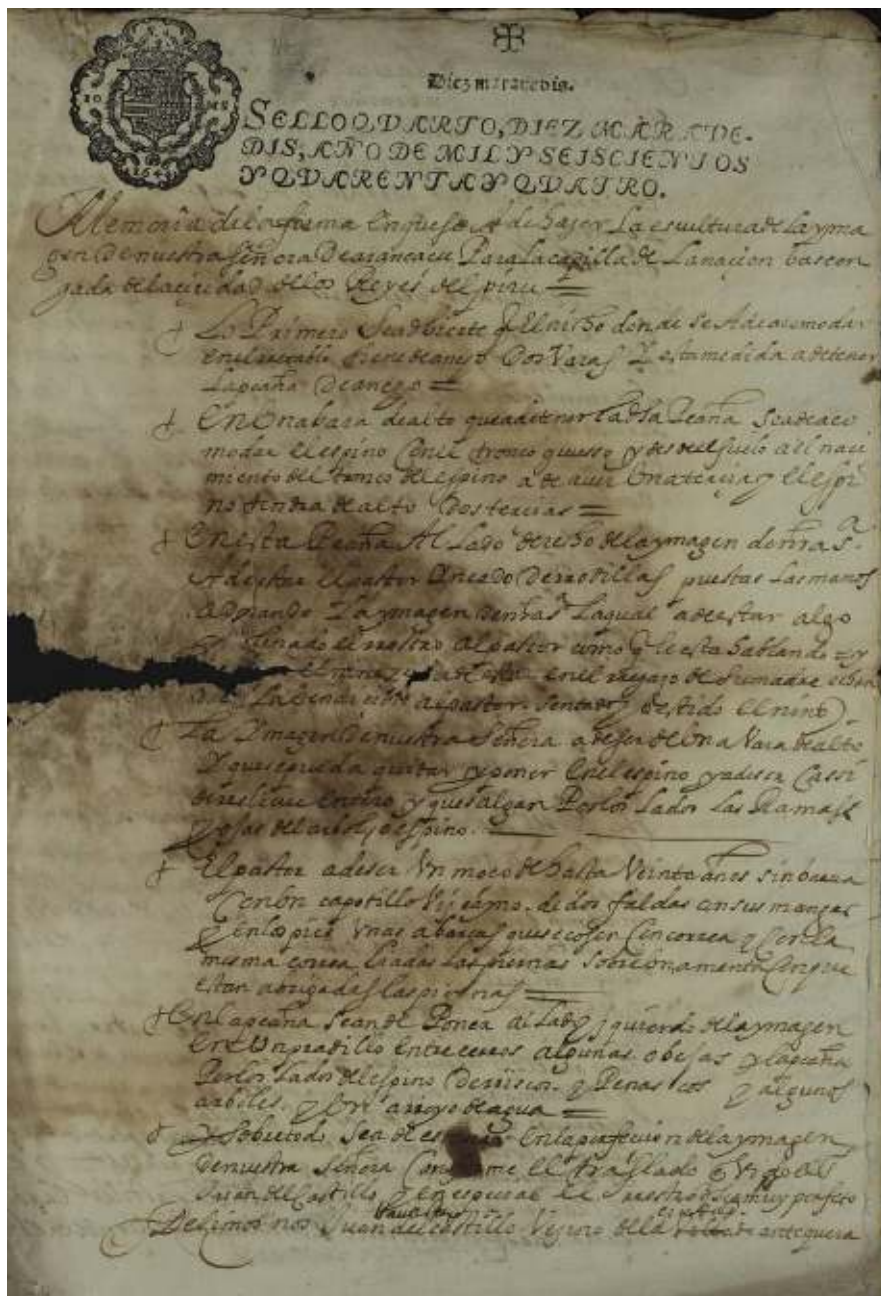 Diez maravedis.
SELLO QVARTO, DIEZ MARAVE-
DIS, AÑO DE MIL Y SEISCIENTOS
Y QVARENTA Y QVATRO.
Memoria de la forma En que se A de hazer La escultura de La yma
gen De nuestra señora De arancacu Para La capilla de La naçion bascon
gada de la çiudad de los Reyes del piru
Lo Primero Se adbierte q El nicho donde se A de acomodar
en el rretablo tiene de ancho Dos Varas Y esta medida a de tener
La peaña De ancho
En Una bara de alto que a de tener toda la Peaña Se a de aco
modar el espino Con el tronco y desde el suelo al naci
miento del tronco del espino a de aver Una terçia y el espi
no tendra de alto Dos terçias
En esta Peaña Al Lado derecho de la ymagen de nra Sa
A de estar el pastor Yncado De rrodillas puestas Las manos
adorando La ymagen de nra Sa La qual a de estar algo
el rrostro al pastor como q le esta hablando y
el niño a de estar en el regazo de su madre
La bendicion al pastor sentado y bestido el niño
La Ymagen De nuestra Señora a de ser de Una Vara de alto
Y que se pueda quitar y poner En el espino y a de ser Cassi
de relieve entero y que salgan Por los Lados Las Ramas
y ojas del arbol, o espino.
El pastor a de ser Un moço de hasta Veinte años sin barva
Con Un capotillo de dos faldas con sus mangas
y en los pies Unas abarcas Con correa y Con la
misma correa Las piernas sobre Con que
estan abrigadas las piernas
En la peaña Se an de Poner al Lado yzquierdo de la ymagen
En Un pradillo Entre cerros algunas obejas y la peaña
Por los Lados del espino De rriscos y Peñascos y algunos
arboles. y Un arroyo de agua
Sobre todo Se a de En la perfeçion de la ymagen
De nuestra Señora Conforme el traslado
Juan del Castillo y en especial el Rostro sea muy perfeto
Desimos nos Juan del castillo Vezino de la ciudad de antequera